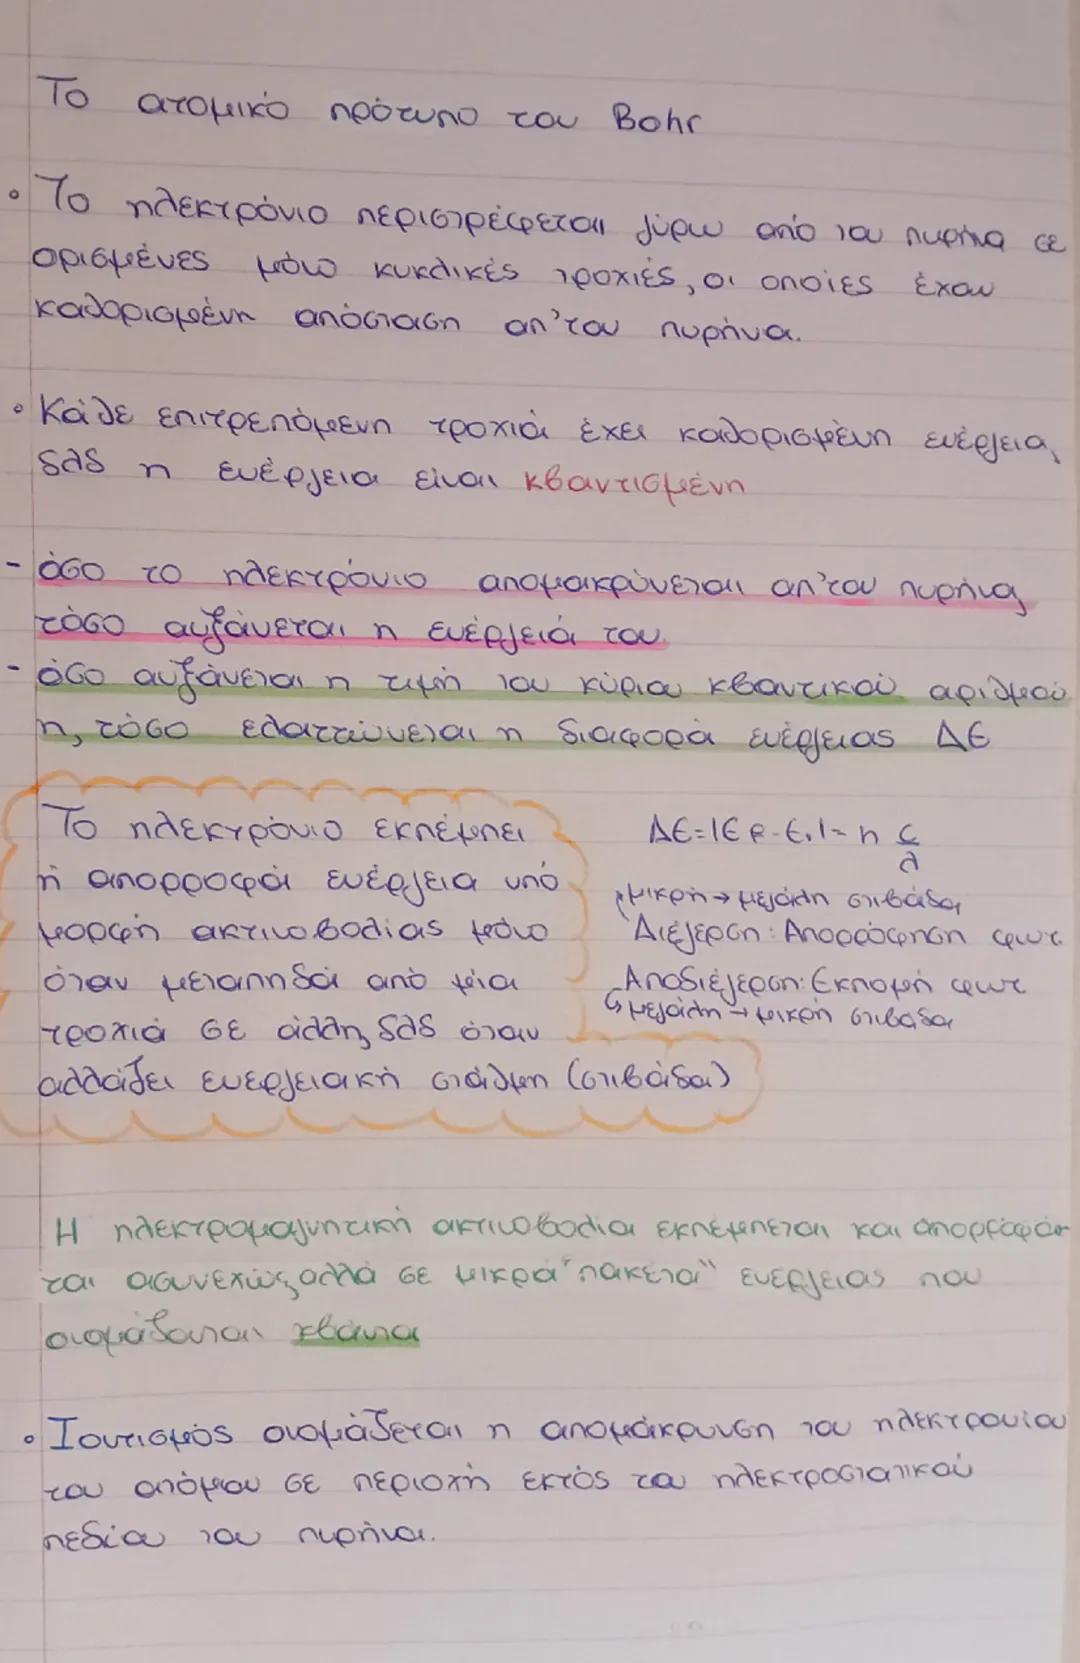 Το ατομικό πρότυπο του Bohr
• Το ηλεκτρόνιο περιστρέφεται γύρω από του πυρήνα σε
ορισμένες μόνο κυκλικές τροχιές, οι οποίες έχου
καθορισμένη απόσταση απ'του πυρήνα.
• Κάθε επιτρεπόμενη τροχιά έχει καθορισμένη ενέργεια,
δλδ η ενέργεια είναι κβαντισμένη
- όσο το ηλεκτρόνιο απομακρύνεται απ'του πυρήνα,
τόσο αυξάνεται η ενέργειά του.
- όσο αυξάνεται η τιμή του κύριου κβαντικού αριθμού
n, τόσο ελαττώνεται η διαφορά ενέργειας ΔΕ
Το ηλεκτρόνιο εκπέμπει
ή απορροφά ενέργεια υπό
μορφή ακτινοβολίας μόνο
όταν μεταπηδά από μία
τροχιά σε άλλη, δλδ όταν
αλλάζει ενεργειακή στάθμη (στιβάδα)
ΔΕ=|Εf-Ει|= h c/λ
μικρή → μεγάλη στιβάδα
Διέγερση: Απορρόφηση φωτ
Αποδιέγερση: Εκπομπή φωτ
↳ μεγάλη → μικρή στιβάδα
Η ηλεκτρομαγνητική ακτινοβολία εκπέμπεται και απορροφάτ
ται ασυνεχώς, αλλά σε μικρά "πακέτα" ενέργειας που
ονομάζονται κβάντα
• Ιοντισμός ονομάζεται η απομάκρυνση του ηλεκτρονίου
του ατόμου σε περιοχή εκτός του ηλεκτροστατικού
πεδίου του πυρήνα.